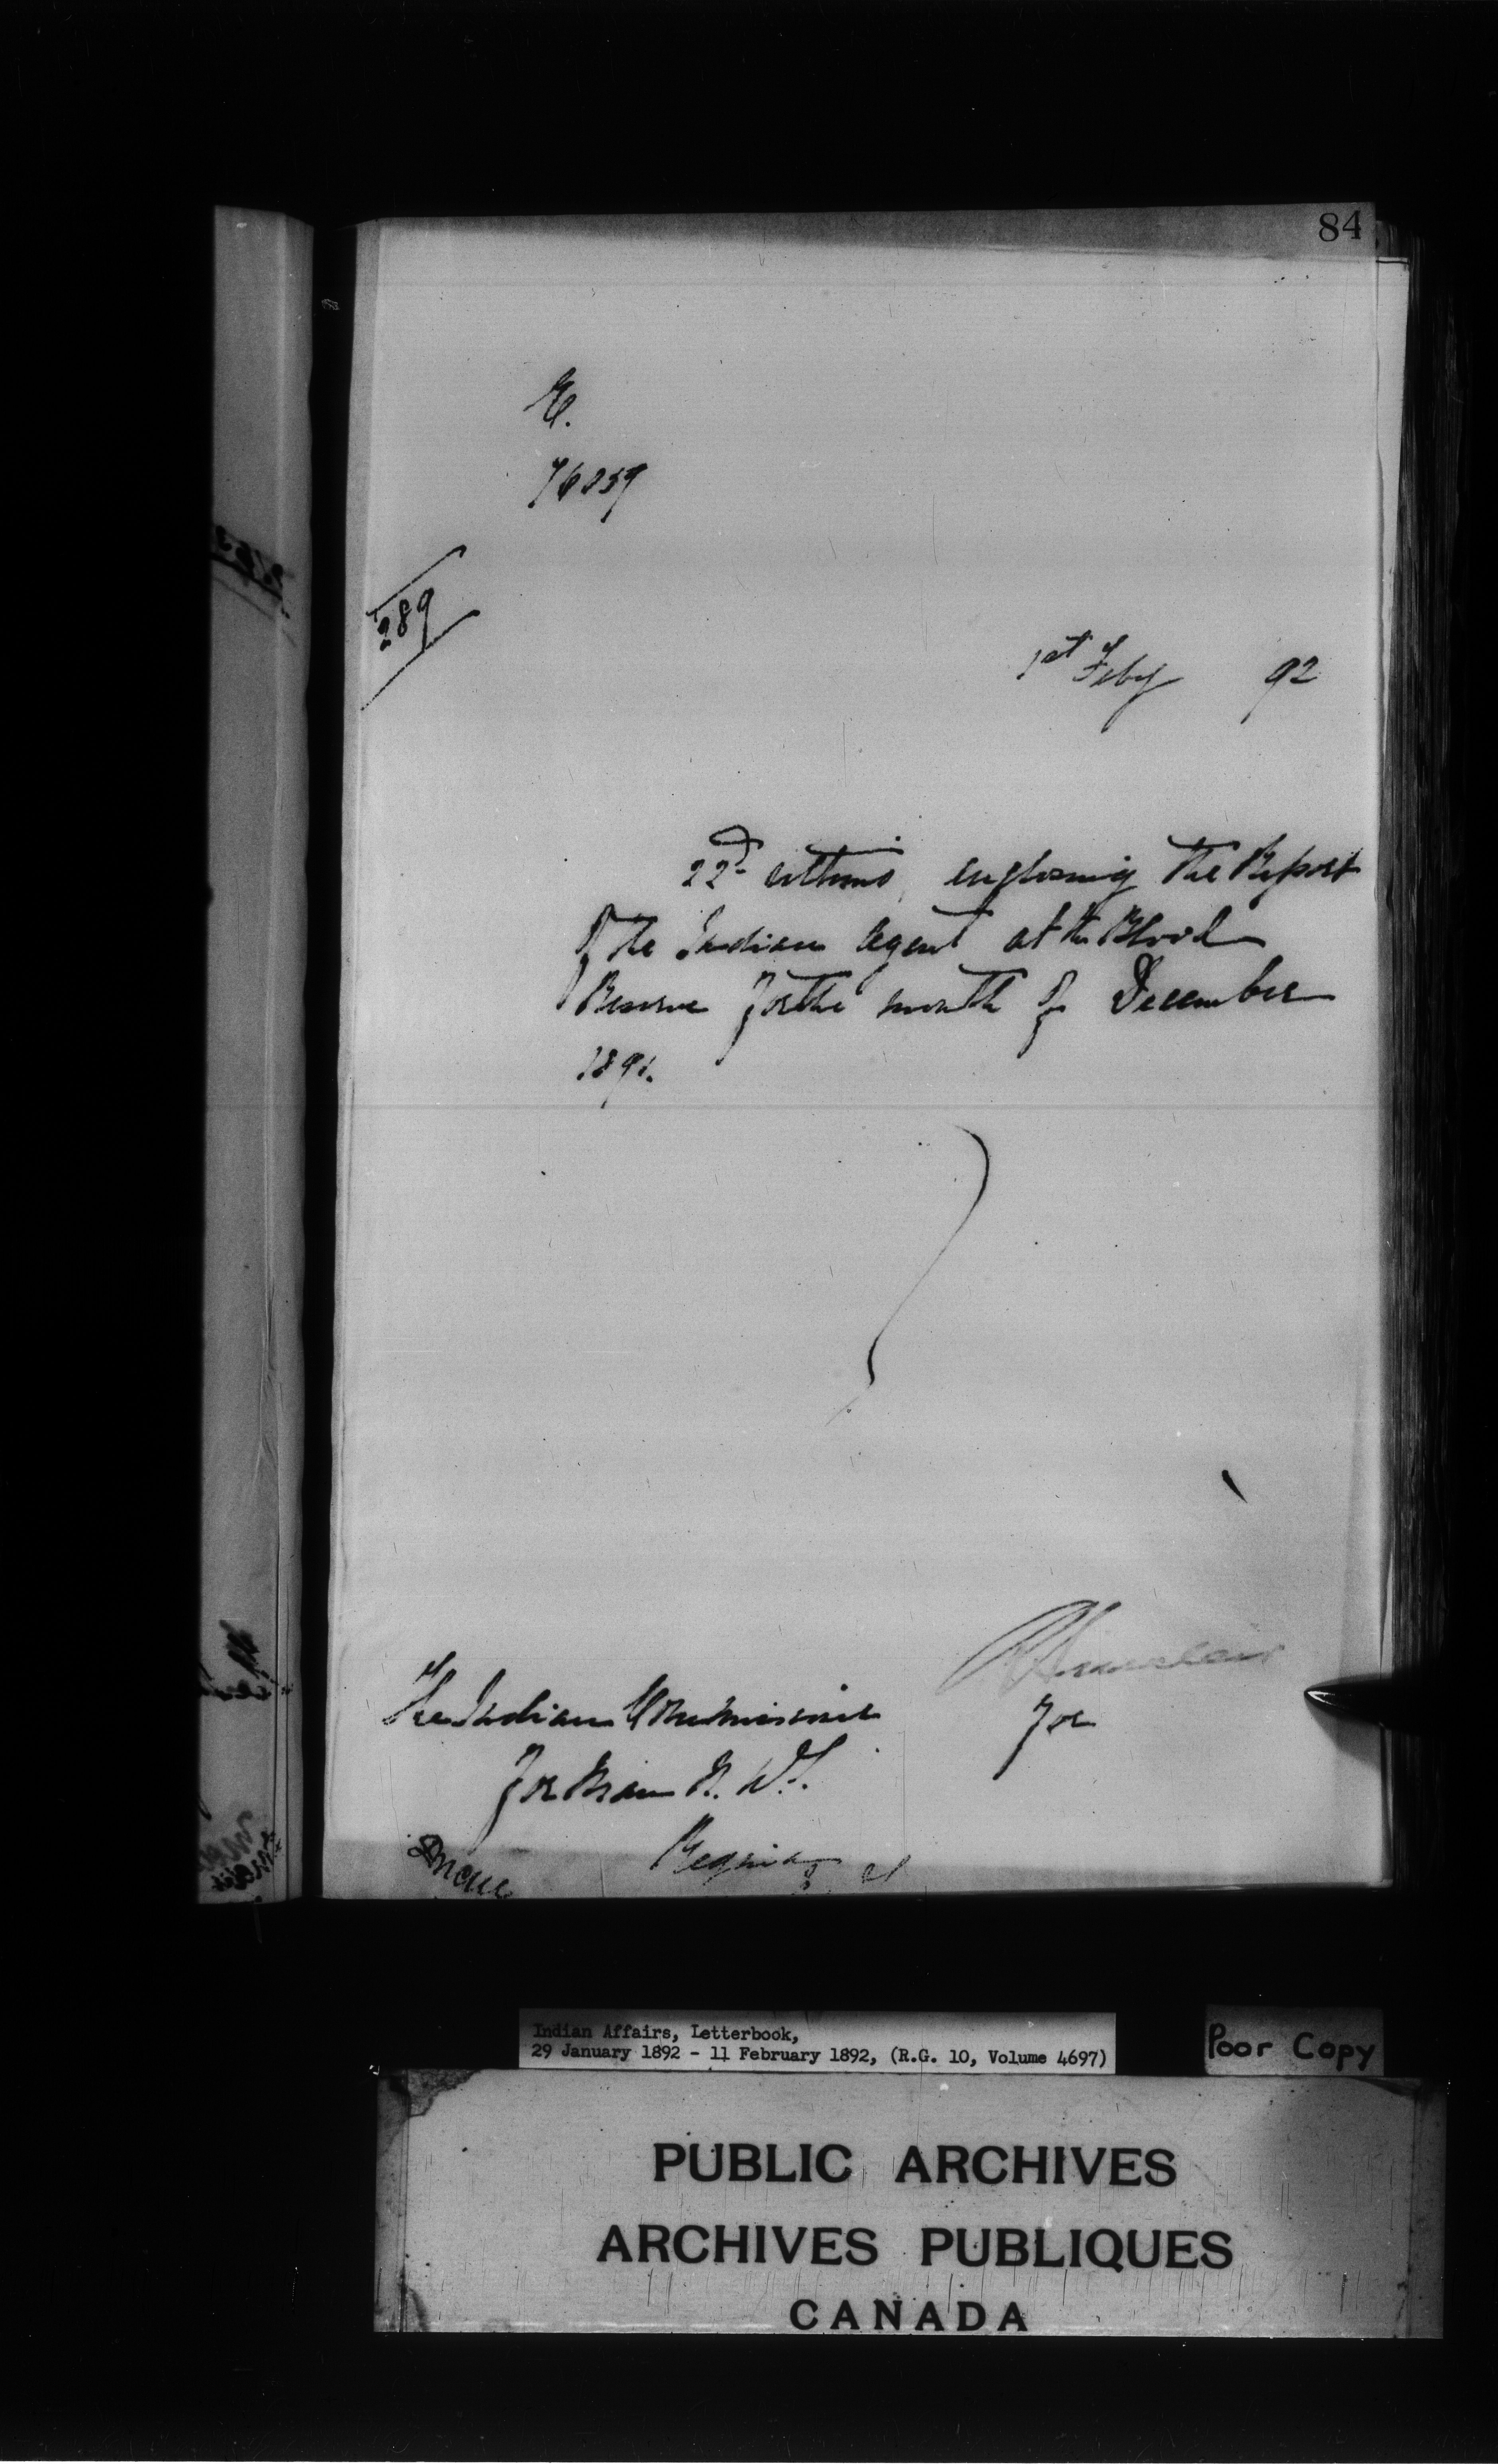 84
E.
76059
289
1st Feby 92
22d ultimo, enclosing the Report
of the Indian Agent at the Blood
Reserve for the month of December
1891.
The Indian Commissioner
for
For Man. N. W. T.
Regina
Indian Affairs, Letterbook,
29 January 1892 - 11 February 1892, (R.G. 10, Volume 4697)
Poor Copy
PUBLIC ARCHIVES
ARCHIVES PUBLIQUES
CANADA